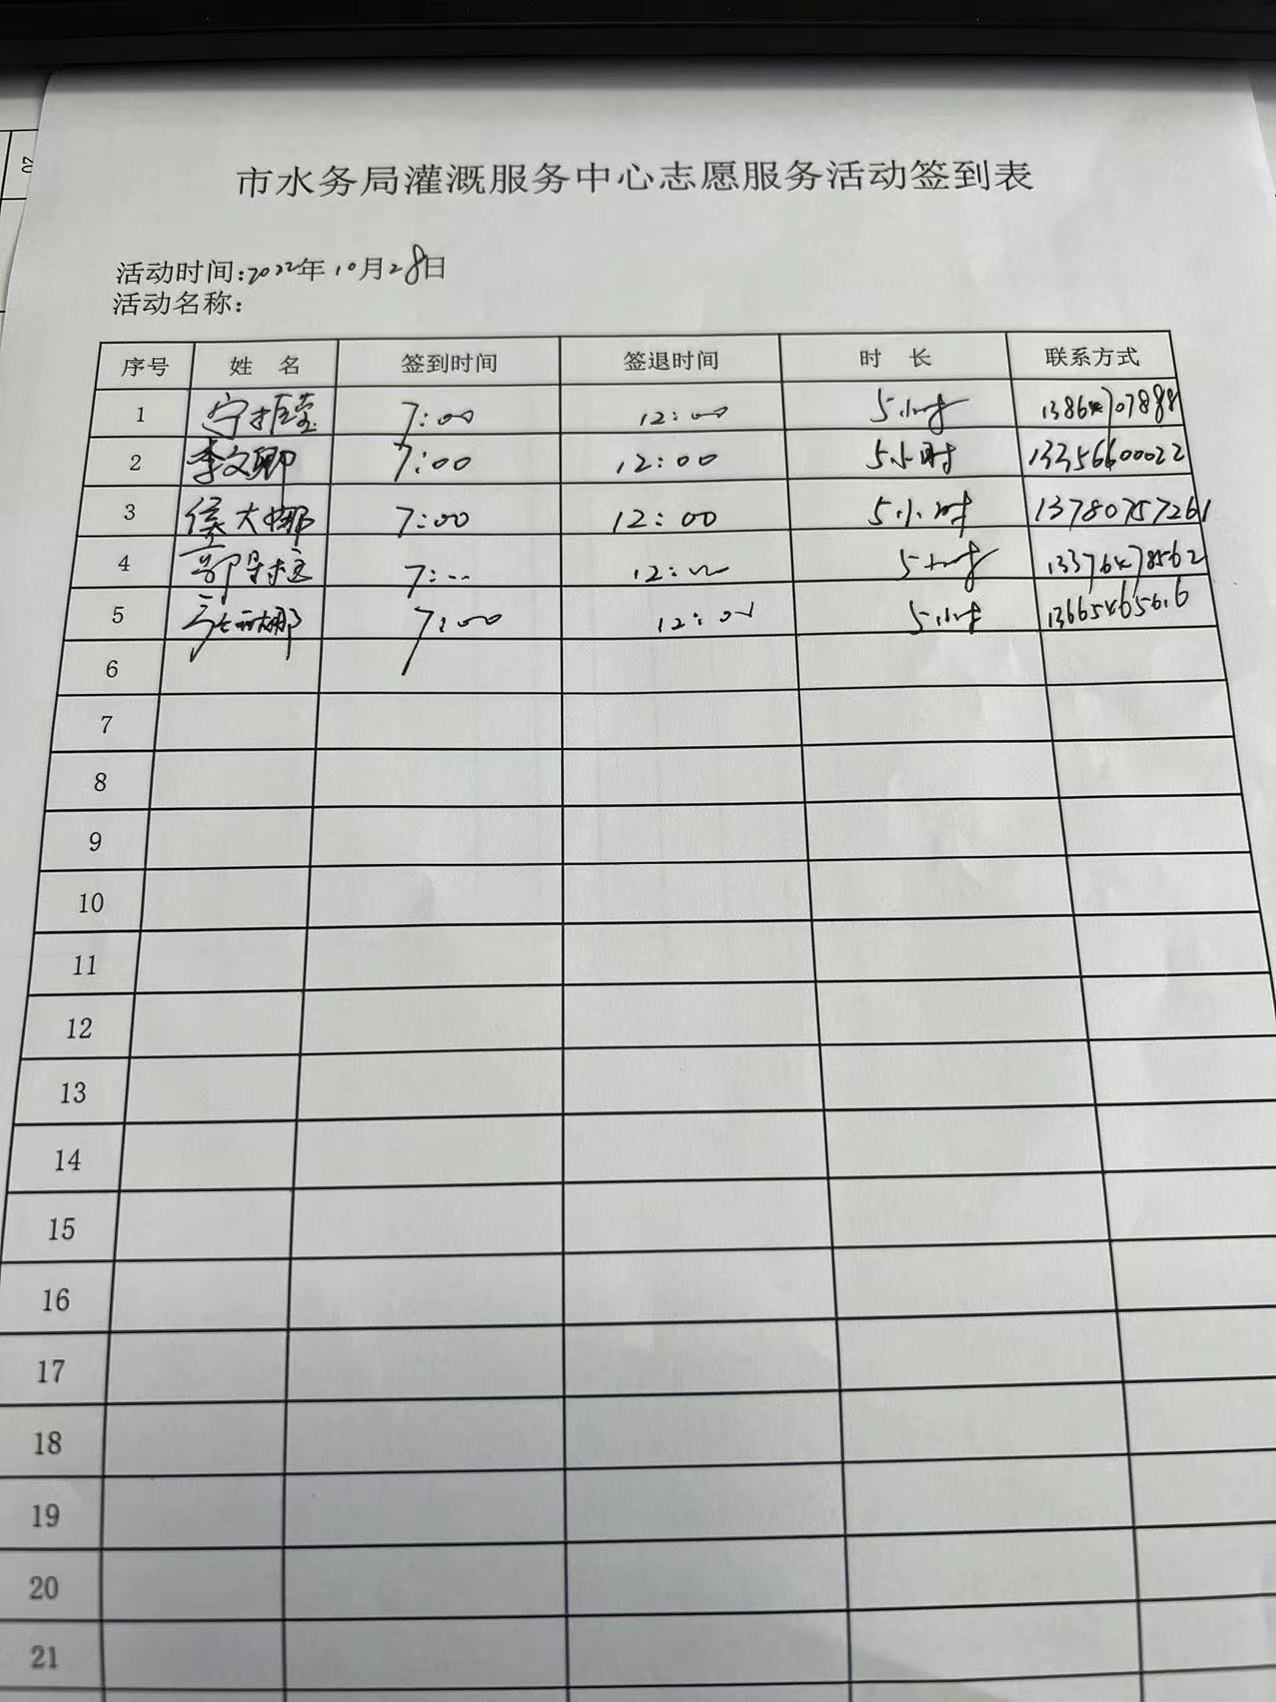 市水务局灌溉服务中心志愿服务活动签到表
活动时间:2022年10月28日
活动名称:
序号 姓 名 签到时间 签退时间 时 长 联系方式
1 宁 7:00 12:00 5小时 13864707888
2 李文卿 7:00 12:00 5小时 13356600022
3 侯大娜 7:00 12:00 5小时 13780757261
4 郭 7:00 12:00 5小时 13376478562
5 娜 7:00 12:00 5小时 13665465616
6
7
8
9
10
11
12
13
14
15
16
17
18
19
20
21